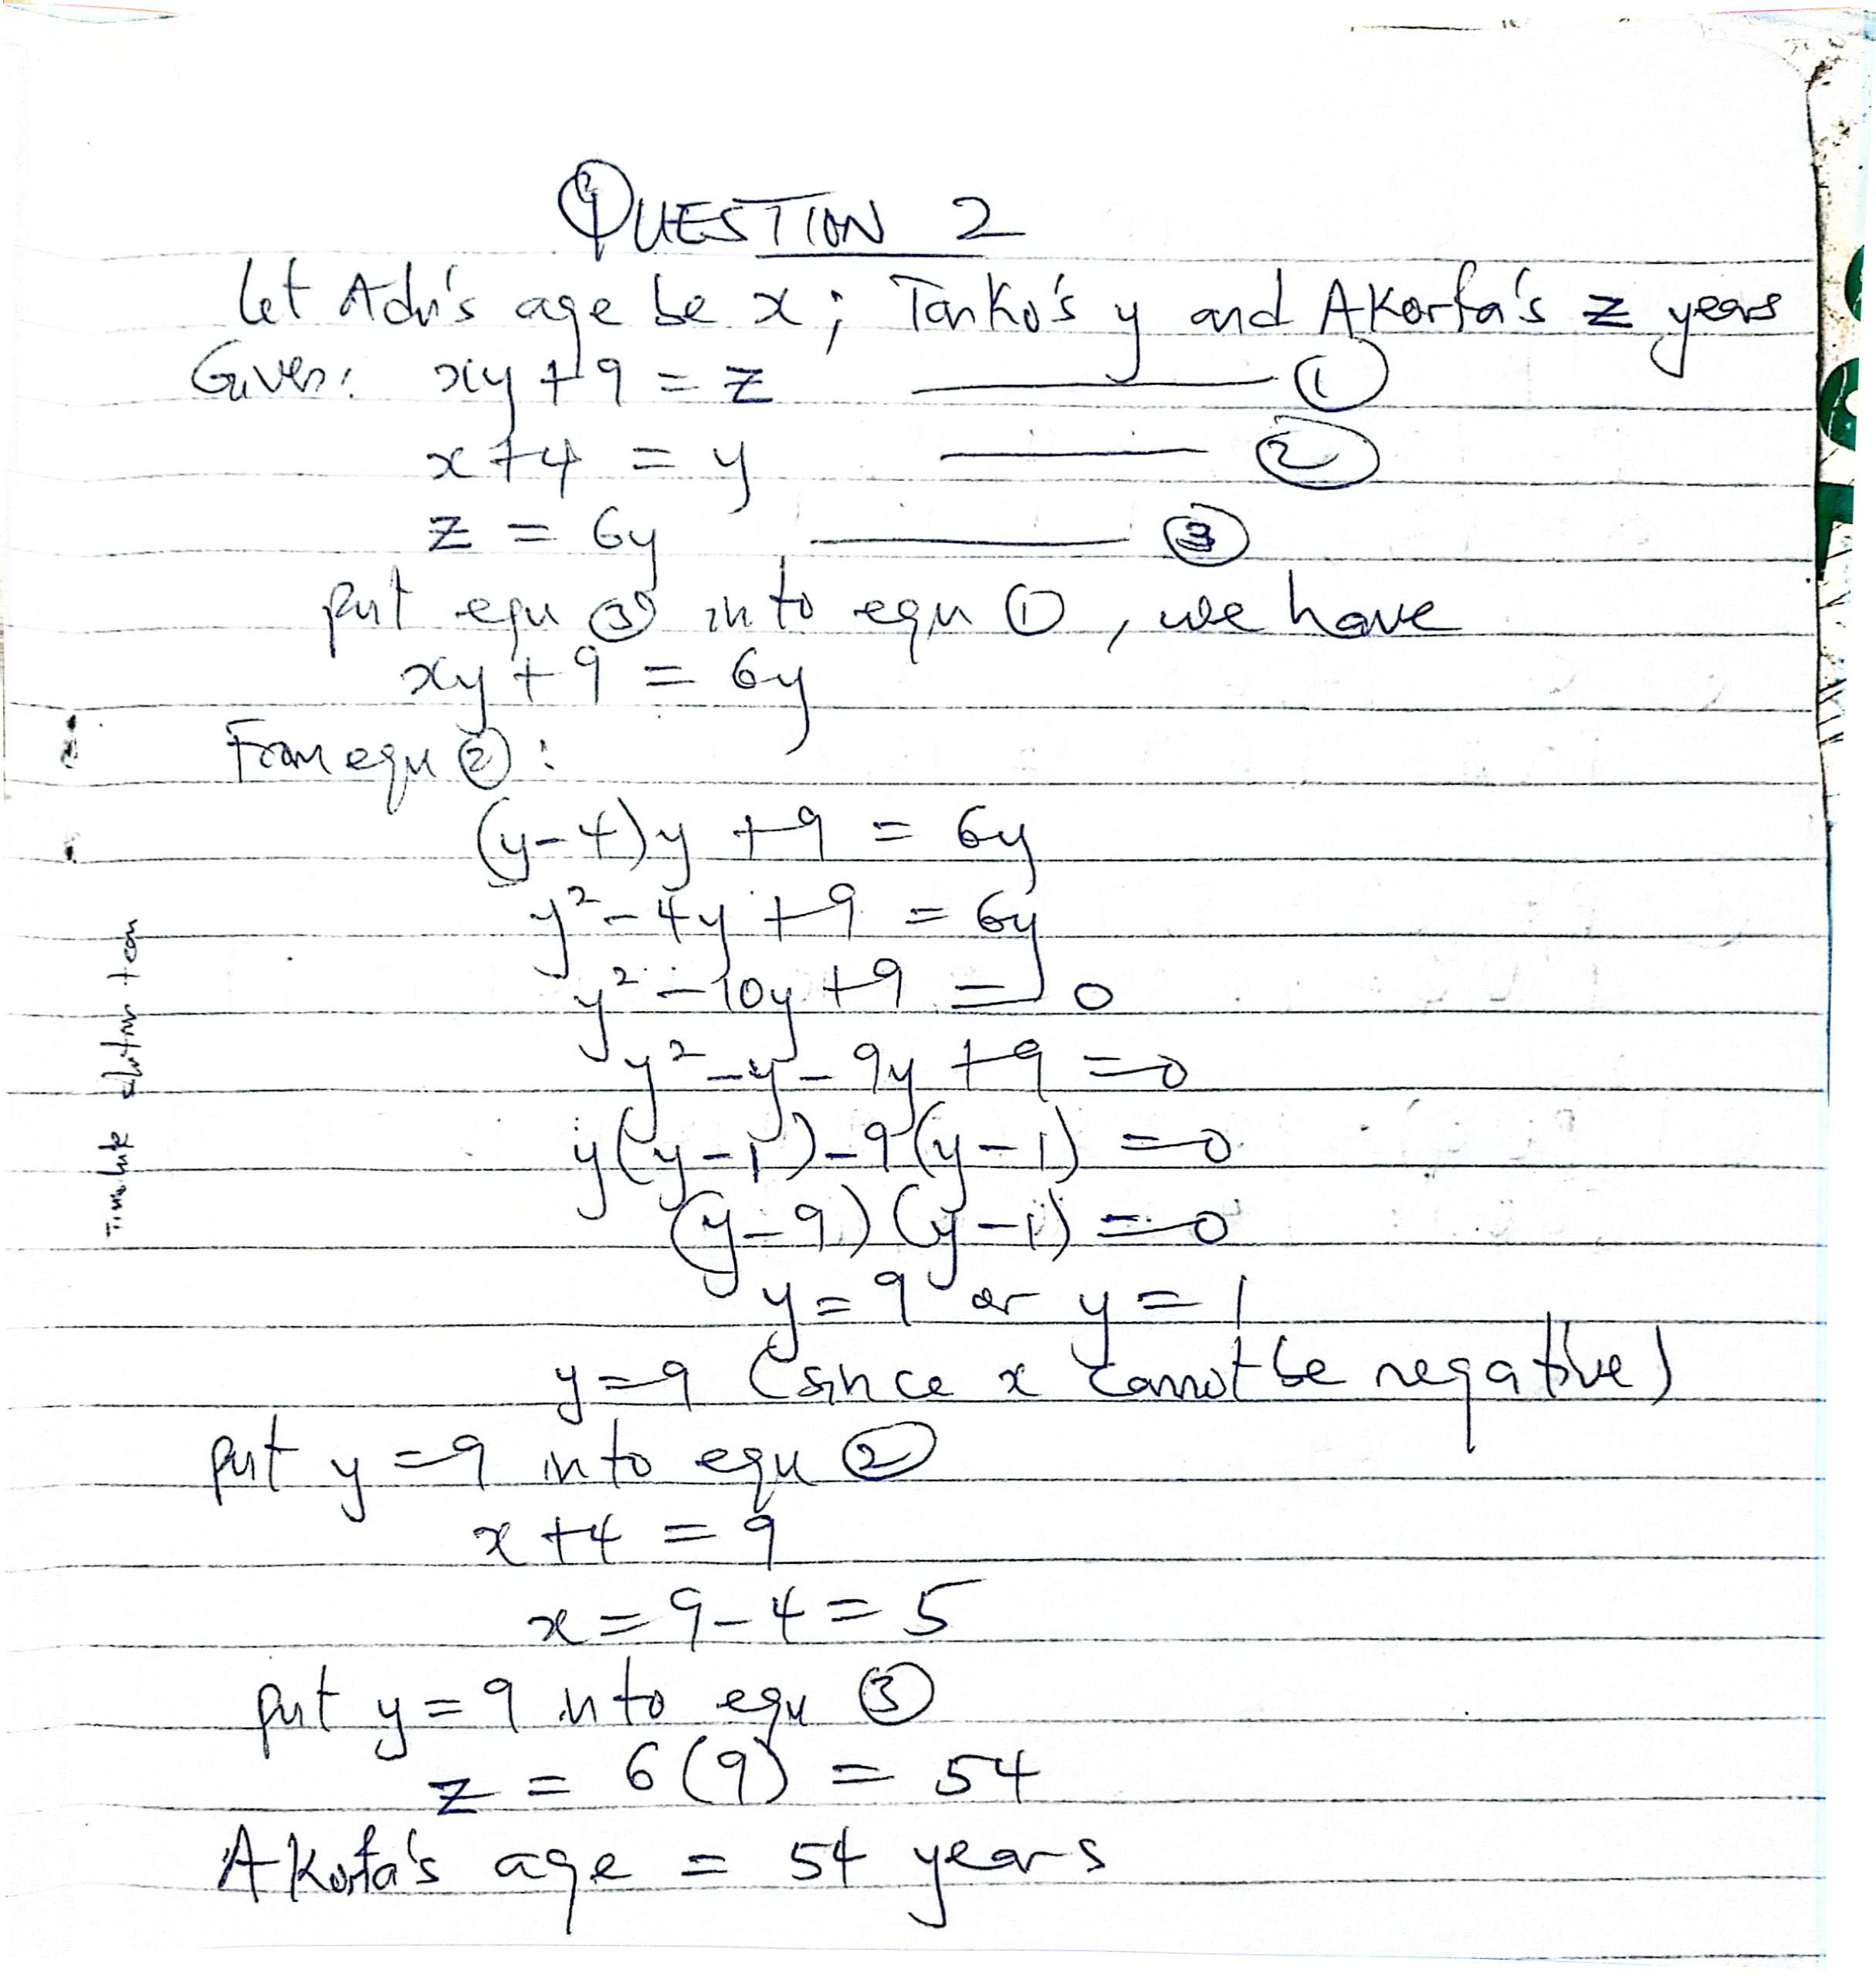 QUESTION 2
Let Adu's age be x; Tanko's y and Akorfa's z years
Given: xy + 9 = z ——— ①
x + 4 = y ——— ②
z = 6y ——— ③
put equ ③ into equ ①, we have
xy + 9 = 6y
From equ ②:
(y-4)y + 9 = 6y
y² - 4y + 9 = 6y
y² - 10y + 9 = 0
y² - y - 9y + 9 = 0
y(y-1) - 9(y-1) = 0
(y-9)(y-1) = 0
y = 9 or y = 1
y = 9 (since x cannot be negative)
put y = 9 into equ ②
x + 4 = 9
x = 9 - 4 = 5
put y = 9 into equ ③
z = 6(9) = 54
Akorfa's age = 54 years
solution team